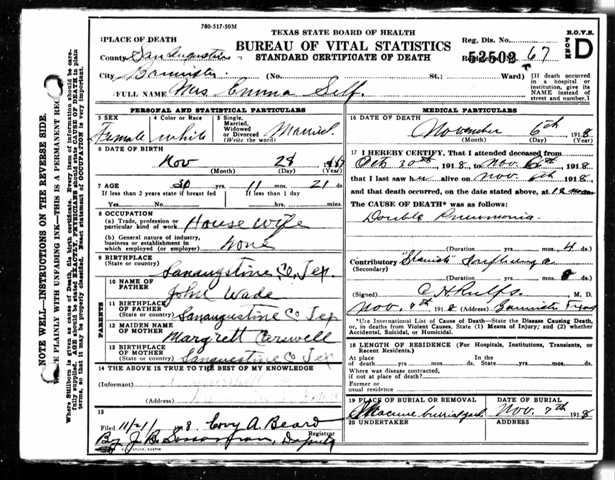 780-517-50M
TEXAS STATE BOARD OF HEALTH
BUREAU OF VITAL STATISTICS
STANDARD CERTIFICATE OF DEATH
B.O.V.S.
FORM D
1 PLACE OF DEATH
County San Augustine
City Bannister (No. St.; Ward)
Reg. Dis. No.
52502 67
[If death occurred in a hospital or institution, give its NAME instead of street and number.]
FULL NAME Mrs Emma Self.
PERSONAL AND STATISTICAL PARTICULARS
3 SEX
Female
4 Color or Race
white
5 Single, Married, Widowed or Divorced (Write the word)
Married
6 DATE OF BIRTH
Nov 28
(Month) (Day) (Year)
7 AGE 30 yrs. 11 mos. 21 ds
If less than 2 years state if breast fed
If less than 1 day
Yes No hrs. min.
8 OCCUPATION
(a) Trade, profession or particular kind of work House wife
(b) General nature of industry, business or establishment in which employed (or employer) none
9 BIRTHPLACE
(State or country) Sanaugustine Co, Tex
PARENTS
10 NAME OF FATHER John Wade
11 BIRTHPLACE OF FATHER
(State or country) Sanaugustine Co Tex
12 MAIDEN NAME OF MOTHER Margrett
13 BIRTHPLACE OF MOTHER
(State or country) Sanaugustine Co Tex
14 THE ABOVE IS TRUE TO THE BEST OF MY KNOWLEDGE
(Informant)
(Address)
15
Filed 11/21 8. Covy A. Beard
Registrar
By J. B. Deputy
MEDICAL PARTICULARS
16 DATE OF DEATH
November 6th 1918
(Month) (Day) (Year)
17 I HEREBY CERTIFY, That I attended deceased from
Oct 20th, 1918, Nov. 6th 1918
that I last saw h alive on Nov. 6th 1918
and that death occurred, on the date stated above, at 12
The CAUSE OF DEATH* was as follows:
Double Pneumonia.
(Duration) yrs. mos. 4 ds.
Contributory "Spanish"
(Secondary)
(Duration) yrs. mos. 8 ds.
(Signed) M. D.
Nov. 7th 1918 (Address) Bannister Texas
*Use International List of Cause of Death—State the Disease Causing Death, or, in deaths from Violent Causes, State (1) Means of Injury; and (2) whether Accidental, Suicidal, or Homicidal.
18 LENGTH OF RESIDENCE (For Hospitals, Institutions, Transients, or Recent Residents.)
At place of death yrs. mos. ds. State yrs. mos. ds.
Where was disease contracted, if not at place of death?
Former or usual residence
19 PLACE OF BURIAL OR REMOVAL
DATE OF BURIAL
Nov. 7th 1918
20 UNDERTAKER
ADDRESS
NOTE WELL—INSTRUCTIONS ON THE REVERSE SIDE.
PLAINLY WITH UNFADING INK—THIS IS A PERMANENT